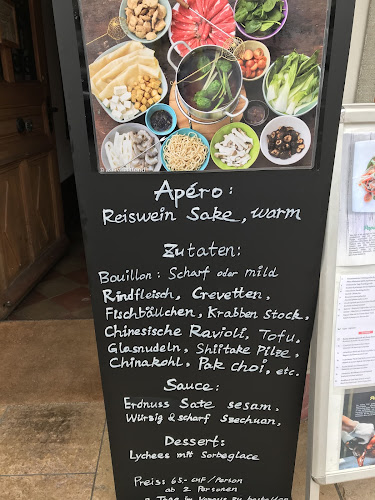 Apéro:
Reiswein Sake, warm
Zutaten:
Bouillon: Scharf oder mild
Rindfleisch, Crevetten,
Fischbällchen, Krabben Stock,
Chinesische Ravioli, Tofu,
Glasnudeln, Shiitake Pilze,
Chinakohl, Pak choi, etc.
Sauce:
Erdnuss Sate sesam,
Würzig & scharf Szechuan,
Dessert:
Lychees mit Sorbeglace
Preiss 65.- CHF/Person
ab 2 Personen